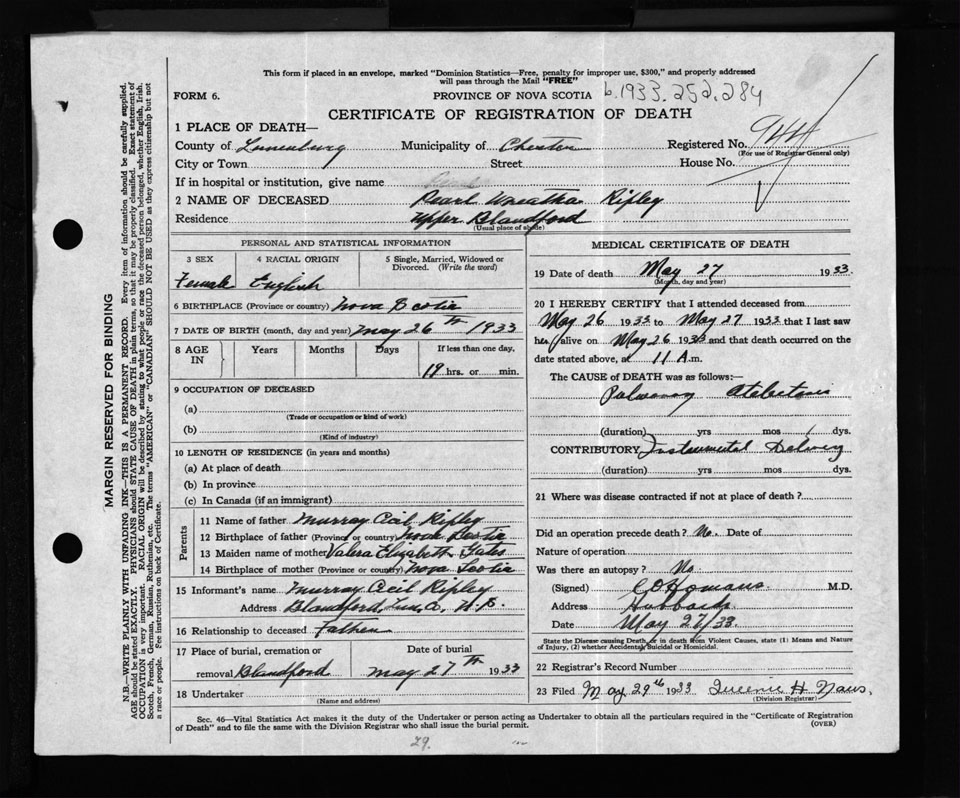 This form if placed in an envelope, marked "Dominion Statistics—Free, penalty for improper use, $300," and properly addressed
will pass through the Mail "FREE"
FORM 6.
PROVINCE OF NOVA SCOTIA
b.1933.252.284
CERTIFICATE OF REGISTRATION OF DEATH
1 PLACE OF DEATH—
County of Lunenburg Municipality of Chester Registered No.
(For use of Registrar General only)
City or Town Street House No.
If in hospital or institution, give name
2 NAME OF DECEASED Pearl Ripley
Residence Upper Blandford
(Usual place of abode)
PERSONAL AND STATISTICAL INFORMATION
3 SEX 4 RACIAL ORIGIN 5 Single, Married, Widowed or
Divorced. (Write the word)
Female English
6 BIRTHPLACE (Province or country) Nova Scotia
7 DATE OF BIRTH (month, day and year) May 26th 1933
8 AGE IN Years Months Days If less than one day,
19 hrs. or min.
9 OCCUPATION OF DECEASED
(a)
(Trade or occupation or kind of work)
(b)
(Kind of industry)
10 LENGTH OF RESIDENCE (in years and months)
(a) At place of death
(b) In province
(c) In Canada (if an immigrant)
Parents
11 Name of father Murray Cecil Ripley
12 Birthplace of father (Province or country) Nova Scotia
13 Maiden name of mother Valera Elizabeth Gates
14 Birthplace of mother (Province or country) Nova Scotia
15 Informant's name Murray Cecil Ripley
Address Blandford, Lun. Co. N.S.
16 Relationship to deceased Father
17 Place of burial, cremation or Date of burial
removal Blandford May 27th 1933
18 Undertaker
(Name and address)
MEDICAL CERTIFICATE OF DEATH
19 Date of death May 27 1933.
(Month, day and year)
20 I HEREBY CERTIFY that I attended deceased from
May 26 1933 to May 27 1933 that I last saw
her alive on May 26 1933 and that death occurred on the
date stated above, at 11 A.m.
The CAUSE of DEATH was as follows:—
Pulmonary
(duration) yrs mos 1 dys.
CONTRIBUTORY Instrumental Delivery
(duration) yrs. mos. dys.
21 Where was disease contracted if not at place of death?
Did an operation precede death? No. Date of
Nature of operation
Was there an autopsy? No
(Signed) M.D.
Address Hubbards
Date May 27/33.
State the Disease causing Death, or in death from Violent Causes, state (1) Means and Nature
of Injury, (2) whether Accidental, Suicidal or Homicidal.
22 Registrar's Record Number
23 Filed May 29th 1933
(Division Registrar)
Sec. 46—Vital Statistics Act makes it the duty of the Undertaker or person acting as Undertaker to obtain all the particulars required in the "Certificate of Registration
of Death" and to file the same with the Division Registrar who shall issue the burial permit.
(OVER)
29.
MARGIN RESERVED FOR BINDING
N.B.—WRITE PLAINLY WITH UNFADING INK—THIS IS A PERMANENT RECORD. Every item of information should be carefully supplied.
AGE should be stated EXACTLY. PHYSICIANS should STATE CAUSE OF DEATH in plain terms, so that it may be properly classified. Exact statement of
OCCUPATION is very important. RACIAL ORIGIN will be described by stating to what people or race the deceased person belonged, whether English, Irish,
Scotch, French, German, Russian, Ruthenian, etc. The terms "AMERICAN" or "CANADIAN" SHOULD NOT BE USED as they express citizenship but not
a race or people. Fee instructions on back of Certificate.